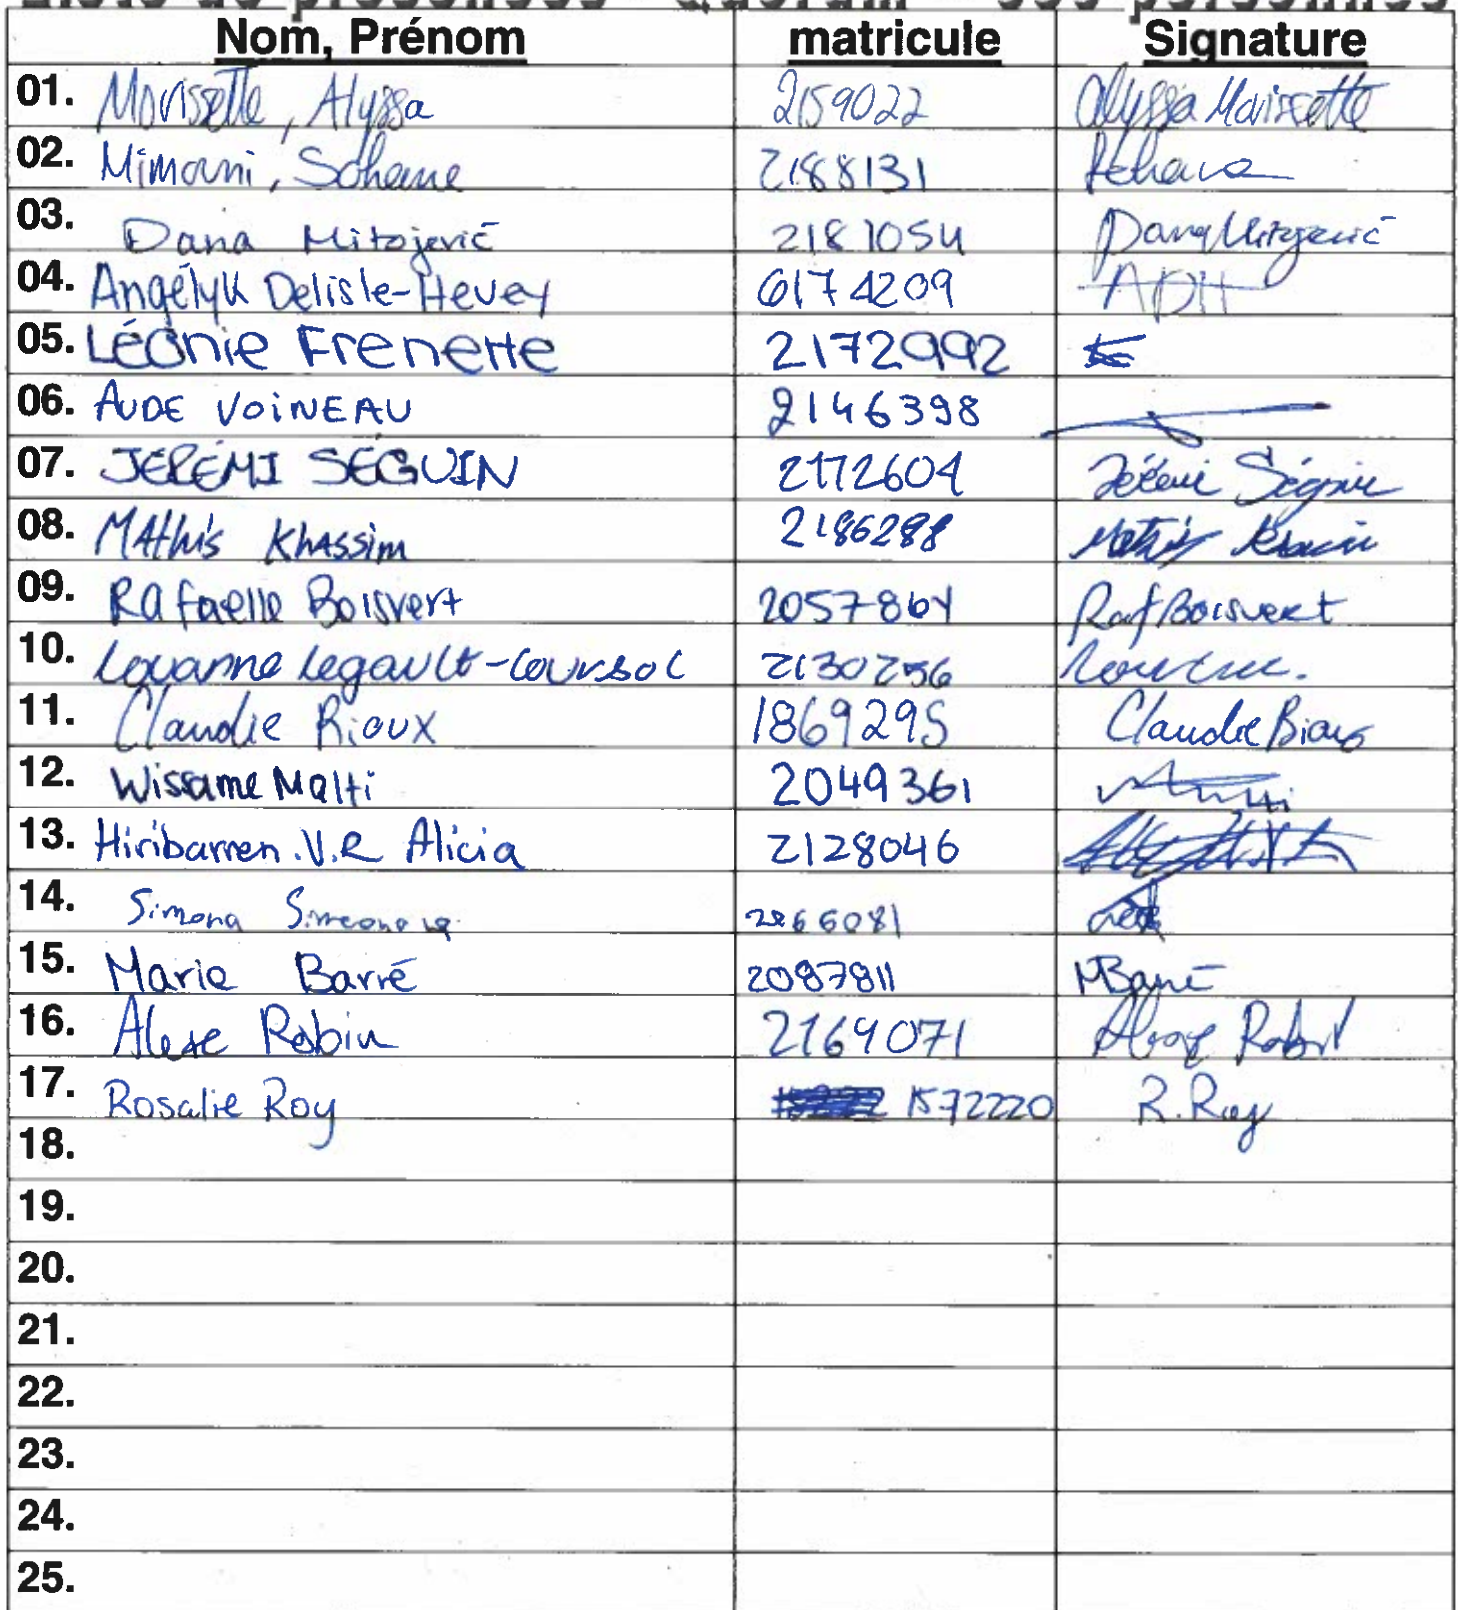 Nom, Prénom matricule Signature
01. Morissette, Alyssa 2159022 Alyssa Morissette
02. Mimouni, Sohane 2188131
03. Dana Mitojević 2181054 Dana Mitojević
04. Angélyk Delisle-Hevey 6174209 ADH
05. Léonie Frenette 2172992
06. AUDE VOINEAU 2146398
07. JÉRÉMI SÉGUIN 2172604 Jérémi Séguin
08. MAthis Khassim 2186288 Mathis Khassim
09. Rafaelle Boisvert 2057864 Raf Boisvert
10. Louanne Legault-Coursol 2130256
11. Claudie Rioux 1869295 Claudie Rioux
12. Wissame Malti 2049361
13. Hiribarren.V.R Alicia 2128046
14. Simona Simeonova
15. Marie Barré 2087811 MBarré
16. Alexe Robin 2169071 Alexe Robin
17. Rosalie Roy 1572220 R. Roy
18.
19.
20.
21.
22.
23.
24.
25.